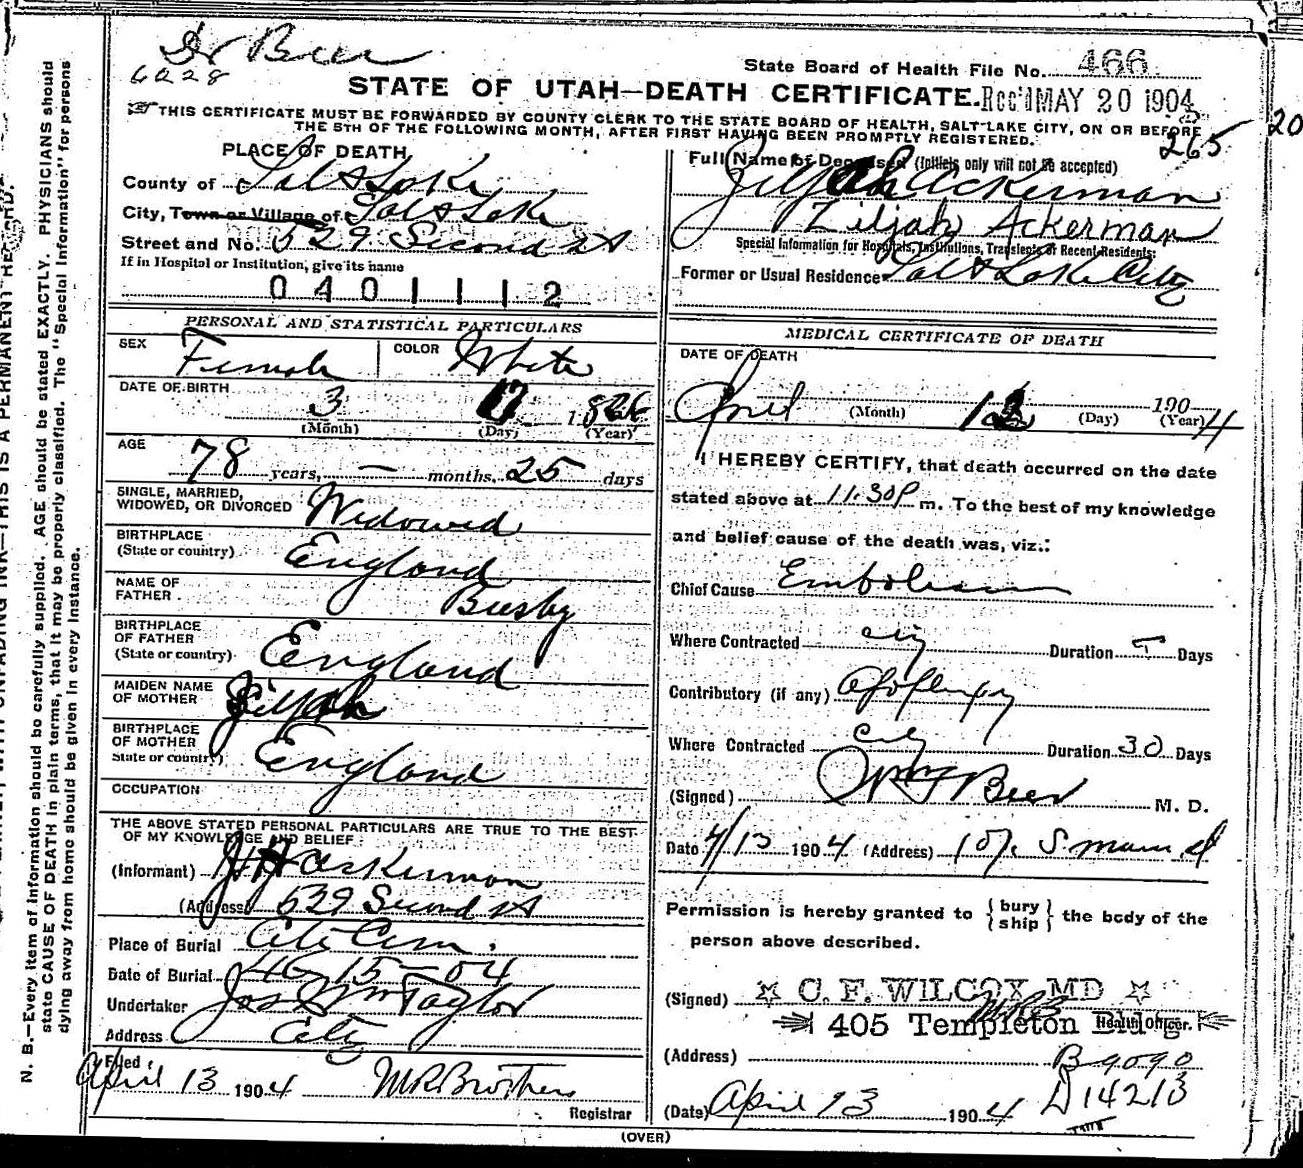 Dr Beer
6a28
State Board of Health File No. 466
STATE OF UTAH—DEATH CERTIFICATE. Rec'd MAY 20 1904
THIS CERTIFICATE MUST BE FORWARDED BY COUNTY CLERK TO THE STATE BOARD OF HEALTH, SALT LAKE CITY, ON OR BEFORE
THE 5TH OF THE FOLLOWING MONTH, AFTER FIRST HAVING BEEN PROMPTLY REGISTERED.
265
20
PLACE OF DEATH
County of Salt Lake
City, Town or Village of Salt Lake
Street and No. 529 Second St
If in Hospital or Institution, give its name
0 4 0 1 1 1 2
Full Name of Deceased (Initials only will not be accepted)
Ziljah Ackerman
Ziljah Ackerman
Special Information for Hospitals, Institutions, Transients or Recent Residents:
Former or Usual Residence Salt Lake City
PERSONAL AND STATISTICAL PARTICULARS
SEX Female COLOR White
DATE OF BIRTH
3 17 1826
(Month) (Day) (Year)
AGE
78 years, — months, 25 days
SINGLE, MARRIED,
WIDOWED, OR DIVORCED Widowed
BIRTHPLACE
(State or country) England
NAME OF
FATHER Busby
BIRTHPLACE
OF FATHER
(State or country) England
MAIDEN NAME
OF MOTHER Ziljah
BIRTHPLACE
OF MOTHER
State or country) England
OCCUPATION
THE ABOVE STATED PERSONAL PARTICULARS ARE TRUE TO THE BEST
OF MY KNOWLEDGE AND BELIEF
(Informant) J H Ackerman
(Address) 529 Second St
Place of Burial City Cem.
Date of Burial 4-15-04
Undertaker Jos Wm Taylor
Address City
Filed
April 13 1904 M R Brothers
Registrar
MEDICAL CERTIFICATE OF DEATH
DATE OF DEATH
April (Month) 12 (Day) 1904 (Year)
I HEREBY CERTIFY, that death occurred on the date
stated above at 11.30 P m. To the best of my knowledge
and belief cause of the death was, viz.:
Chief Cause Embolism
Where Contracted city Duration 5 Days
Contributory (if any) Apoplexy
Where Contracted City Duration 30 Days
(Signed) Wm F Beer M. D.
Date 4/13 1904 (Address) 107. S. main st
Permission is hereby granted to {bury ship} the body of the
person above described.
(Signed) C. F. WILCOX, MD
405 Templeton Bldg. Health Officer.
(Address)
B 9090
D 14213
(Date) April 13 1904
(OVER)
N. B.—Every item of information should be carefully supplied. AGE should be stated EXACTLY. PHYSICIANS should
state CAUSE OF DEATH in plain terms, that it may be properly classified. The "Special Information" for persons
dying away from home should be given in every instance.